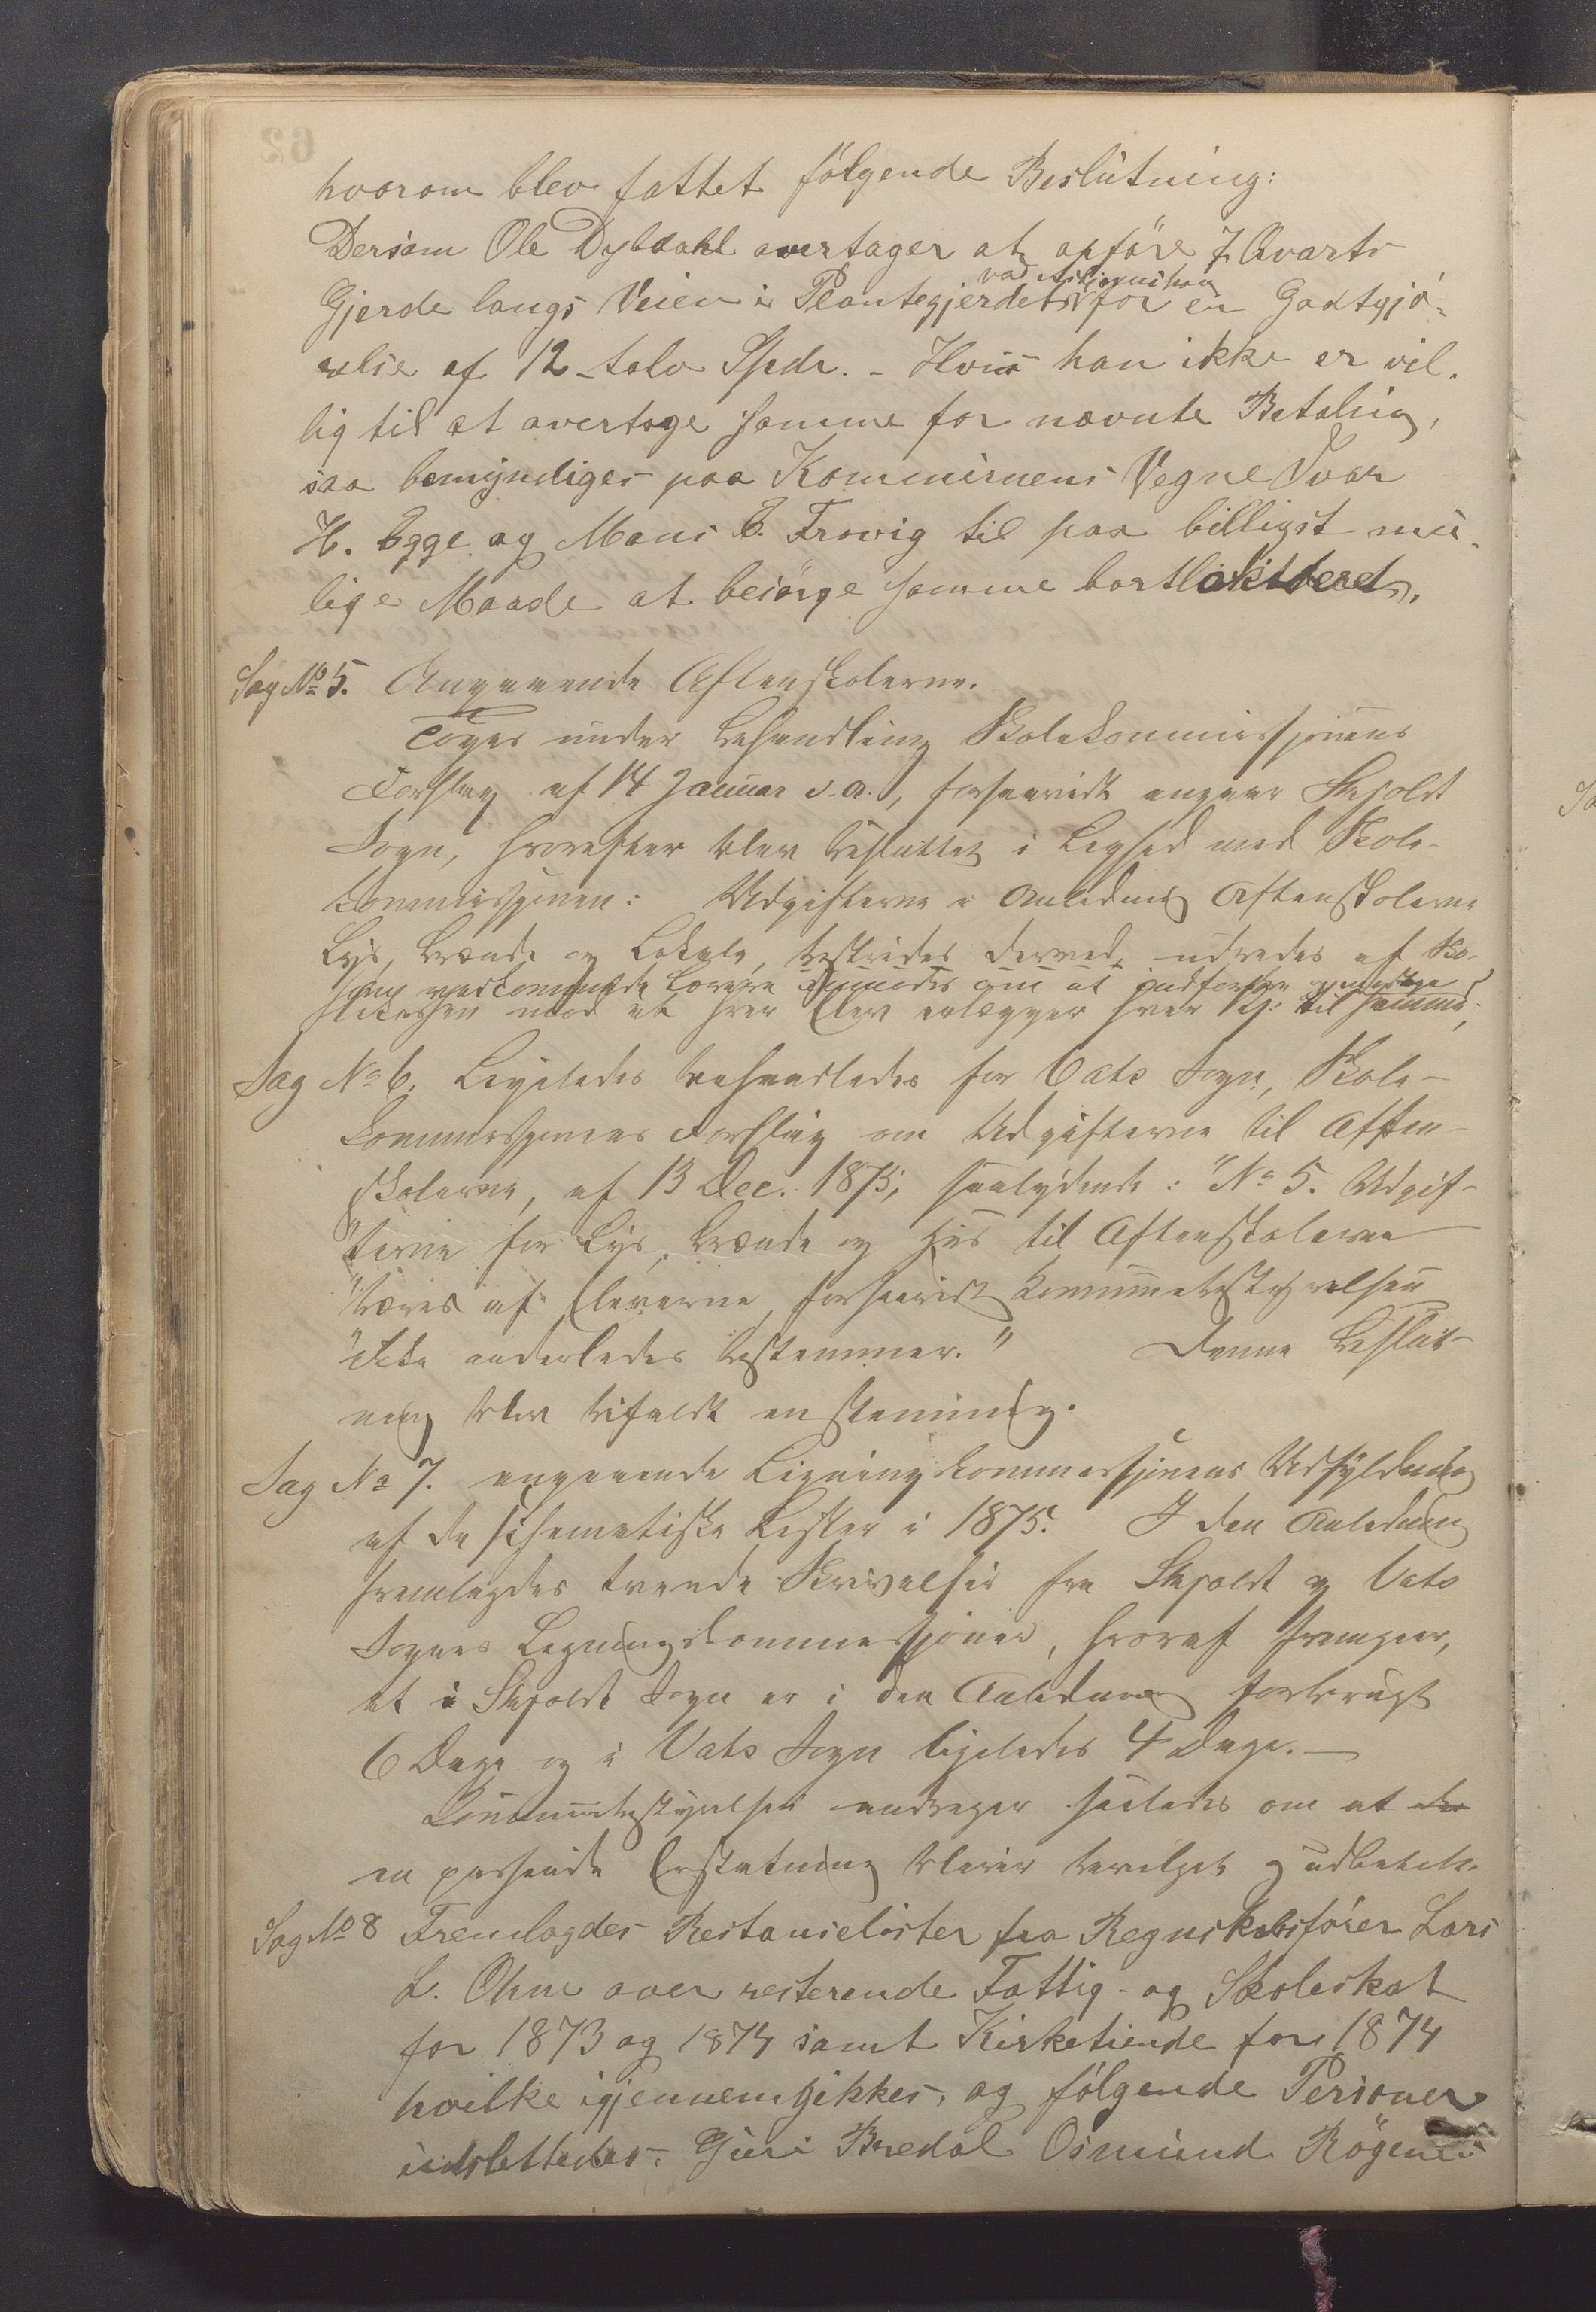 hvorom blev fattet følgende Beslutning:
Dersom Ole Dybdahl overtager at opføre 7 Kvarts
Gjerde langs Veien i Plantegjerdet for en Godtgjø-
relse af 12 - tolv Spdr. - Hvis han ikke er vil-
lig til at overtage samme for nævnte Betaling,
saa bemyndiges paa Kommunens Vegne Ivar
H. Egge og Mons B. Frøvig til paa billigst mu-
lige Maade at besørge samme bortliciteret.
Sag No 5. Angaaende Aftenskolerne.
Toges under Behandling Skolekommissjonens
Forslag af 14 Januar d. a., forsaavidt angaar Skjold
Sogn, hvorefter blev besluttet i Lighed med Skole-
kommissjonen: Udgifterne i Anledning Aftenskolerne
Lys, Brænde og Lokale, bestrides derved, udredes af Sko-
lekassen mod at hver Elev erlægger hver til samme,
Sag No 6. Ligeledes behandledes for Vats Sogn, Skole-
kommissjonens Forslag om Udgifterne til Aften-
skolerne, af 13 Dec. 1875, saalydende: "No 5. Udgif-
"terne for Lys, Brænde og Hus til Aftenskolerne
"bæres af Eleverne, forsaavidt Kommunebestyrelsen
"ikke anderledes bestemmer." Denne Beslut-
ning blev bifaldt enstemmig.
Sag No 7. angaaende Ligningskommissjonens Udfyldning
af de schematiske Lister i 1875. I den Anledning
fremlagdes tvende Skrivelser fra Skjold og Vats
Sognes Ligningskommissjoner, hvoraf fremgaar,
at i Skjold Sogn er i den Anledning forbrugt
6 Dage og i Vats Sogn ligeledes 4 Dage. -
Kommunebestyrelsen andrager saaledes om at der
en passende Erstatning bliver bevilget og udbetalt.
Sag No 8 Fremlagdes Restanselister fra Regnskabsfører Lars
L. Ohm over resterende Fattig- og Skoleskat
for 1873 og 1874 samt Kirketiende for 1874
hvilke igjennemgikkes, og følgende Personer
udslettedes: Guri Bredal Osmund